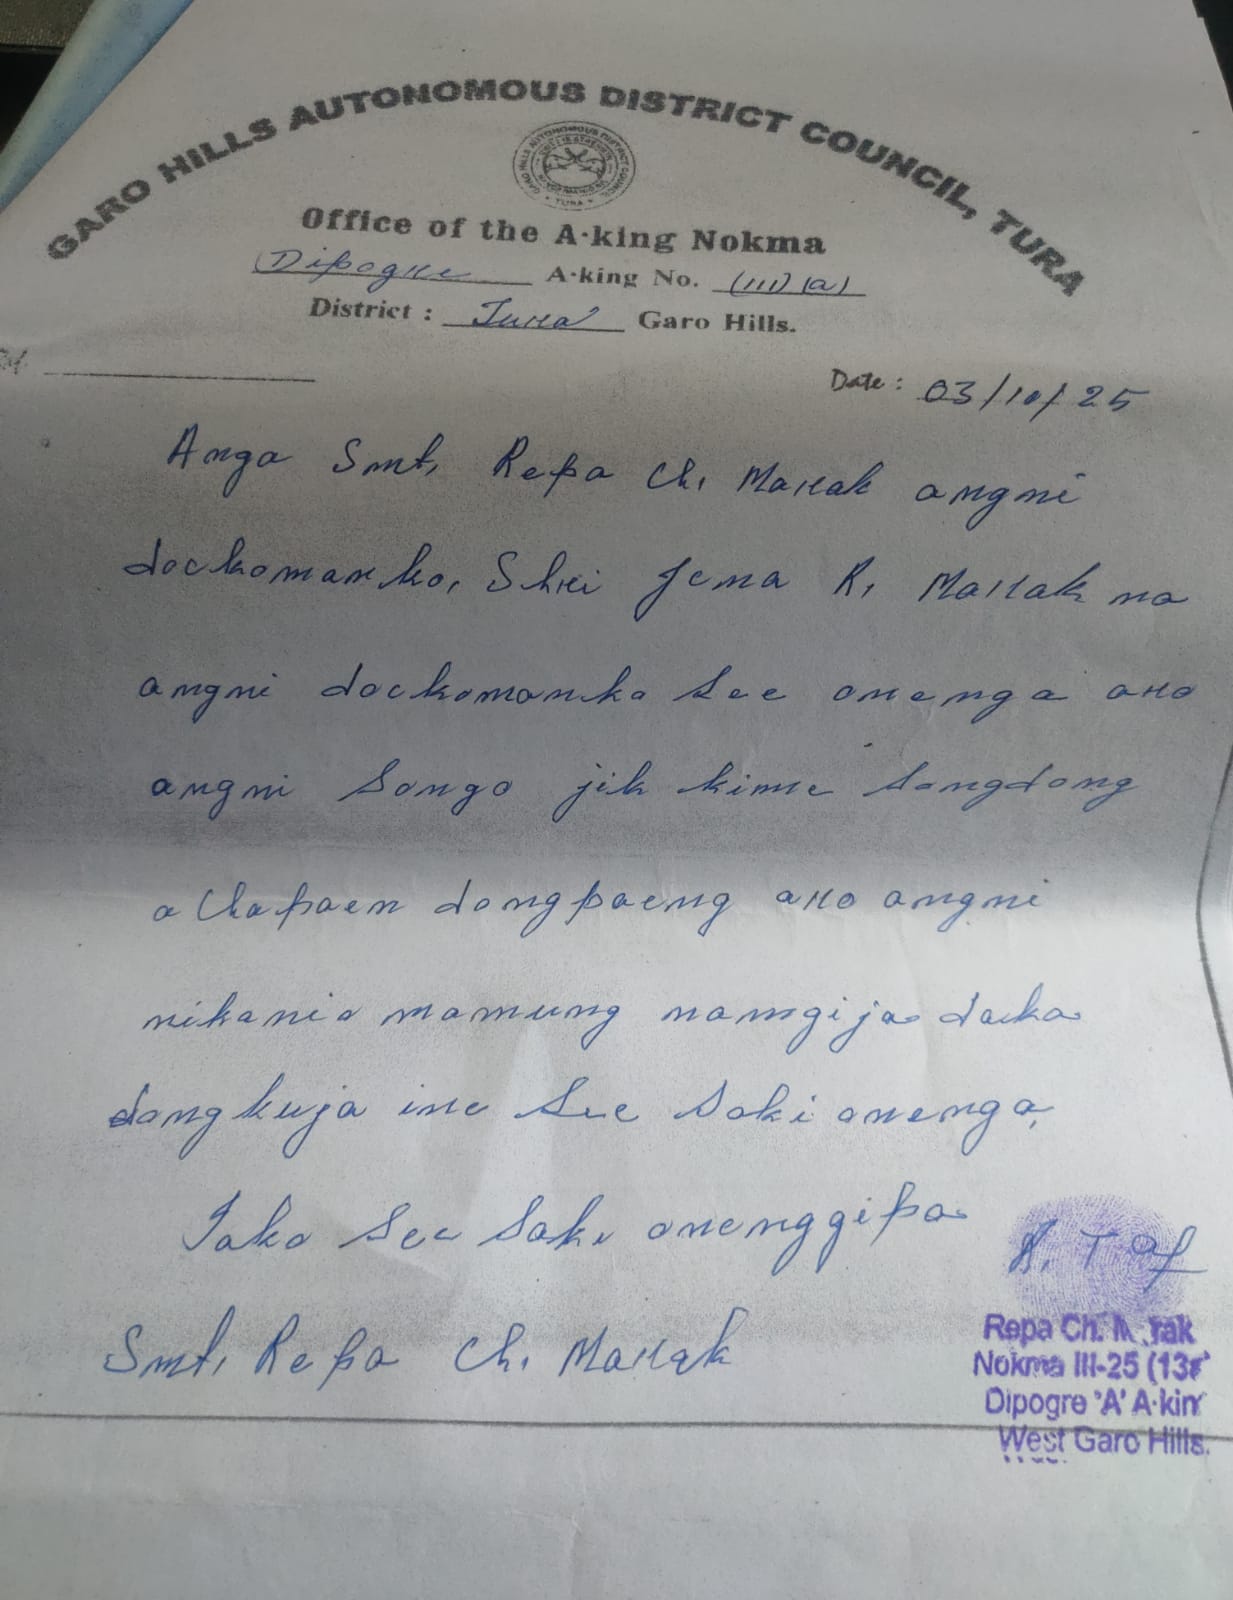 GARO HILLS AUTONOMOUS DISTRICT COUNCIL, TURA
Office of the A·king Nokma
Dipogre A·king No. (III) (a)
District : Tura Garo Hills.
Date : 03/10/25
Anga Smt, Repa Ch, Marak angni
dockomanko, Shri Jema R, Marak na
angni dockomanko See onenga aro
angni Songo jik kime Songdong
a Chapaen dongpaeng aro angni
nikania mamung namgija daka
dongkuja ine See Saki onenga,
Iako See Saki onenggipa
R. T
Smt, Repa Ch, Marak
Repa Ch. Marak
Nokma III-25
Dipogre 'A' A·kin
West Garo Hills.